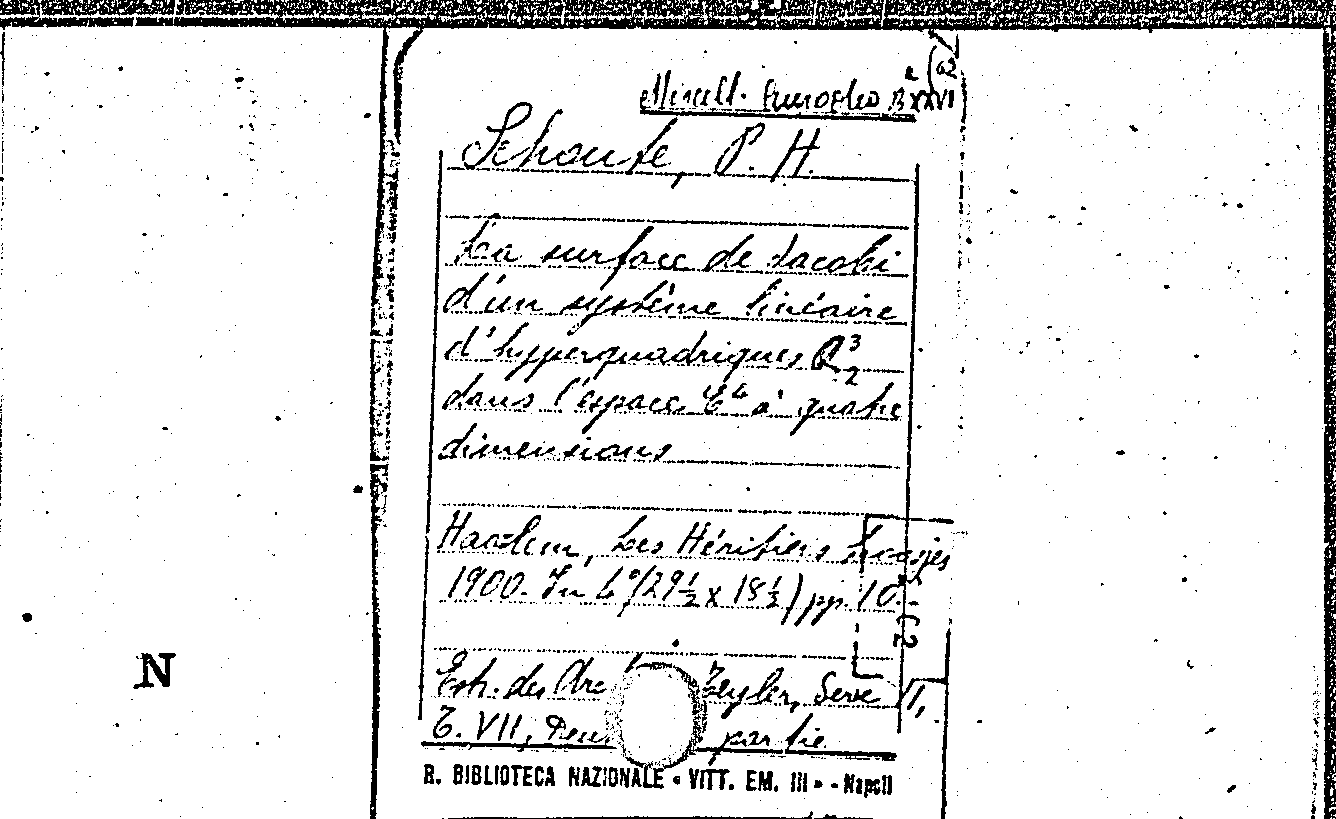 Miscell. B XXVI
(62
Schoute, P. H.
La surface de Jacobi
d'un système linéaire
d'hyperquadriques Q³₂
dans l'espace E⁴ à quatre
dimensions
Haarlem, Les Héritiers Loosjes
1900. In 4° (29½ x 18½) pp. 10.
Estr. des Arc Teyler, Serie II,
T. VII, Deu partie
N
R. BIBLIOTECA NAZIONALE « VITT. EM. III » - Napoli